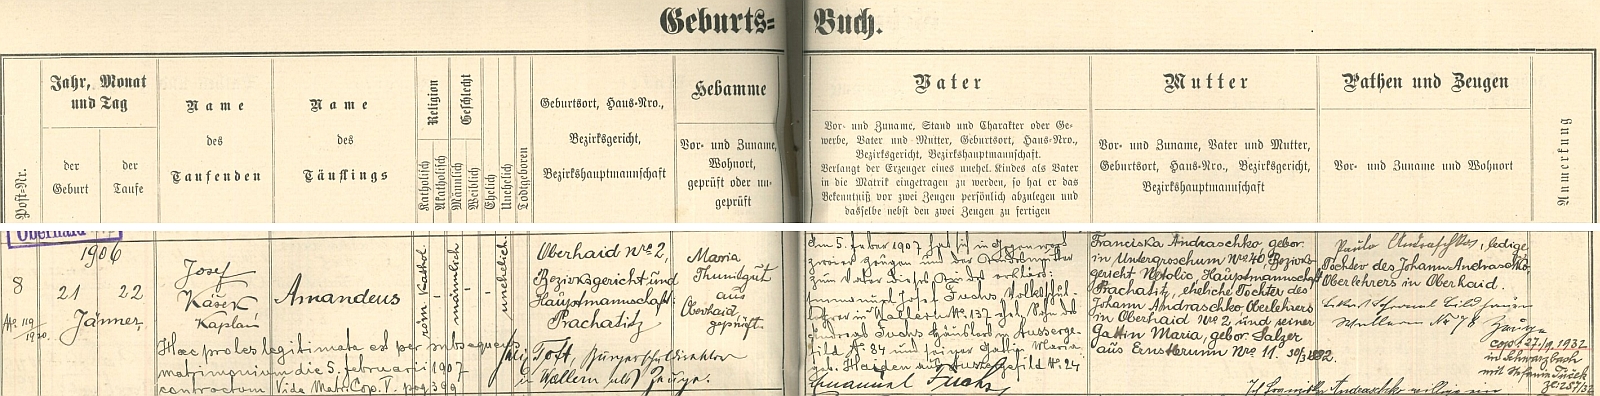 Geburts=Buch.
Post-Nr.
Jahr, Monat
und Tag
der
Geburt
der
Taufe
Name
des
Taufenden
Name
des
Täuflings
Religion
Katholisch
Akatholisch
Geschlecht
Männlich
Weiblich
Ehelich
Unehelich
Todtgeboren
Geburtsort, Haus-Nro.,
Bezirksgericht,
Bezirkshauptmannschaft
Hebamme
Vor- und Zuname,
Wohnort,
geprüft oder un-
geprüft
Vater
Vor- und Zuname, Stand und Charakter oder Ge-
werbe, Vater und Mutter, Geburtsort, Haus-Nro.,
Bezirksgericht, Bezirkshauptmannschaft.
Verlangt der Erzeuger eines unehel. Kindes als Vater
in die Matrik eingetragen zu werden, so hat er das
Bekenntniß vor zwei Zeugen persönlich abzulegen und
dasselbe nebst den zwei Zeugen zu fertigen
Mutter
Vor- und Zuname, Vater und Mutter,
Geburtsort, Haus-Nro., Bezirksgericht,
Bezirkshauptmannschaft
Pathen und Zeugen
Vor- und Zuname und Wohnort
Anmerkung
Oberhaid
1906
8
21
22
Jänner.
Josef
Kašek
Kaplan
Amandeus
röm. Kathol.
männlich
unehelich
Oberhaid Nro 2,
Bezirksgericht und
Hauptmannschaft:
Prachatitz
Maria
Thumtgut
aus
Oberhaid
geprüft.
Haec proles legitimata est per subsequens
matrimonium die 5. februarii 1907
contractum Vide Matr. Cop. V. pag 399
in Wallern als Zeuge.
Am 5. Feber 1907 hat sich in Gegenwart
zweier Zeugen
zum Vater dieses Kindes erklärt:
Josef Fuchs Volksschul-
lehrer in Wallern No 137
No 84 und seiner Gattin Maria
Emanuel Fuchs
Franciska Andraschko, gebor.
in Untergroschum Nro 40, Bezirks-
gericht Netolic, Hauptmannschaft
Prachatitz, eheliche Tochter des
Johann Andraschko, Oberlehrers
in Oberhaid Nro 2 und seiner
Gattin Maria, gebor. Salzer
aus Ernstbrunn Nro 11.
Paula Andraschko, ledige
Tochter des Johann Andraschko,
Oberlehrers in Oberhaid.
Wallern No 78
Zeuge
cop. 27/9 1932
in Schwarzbach
mit Stefanie Tuček
Andraschko willige ein